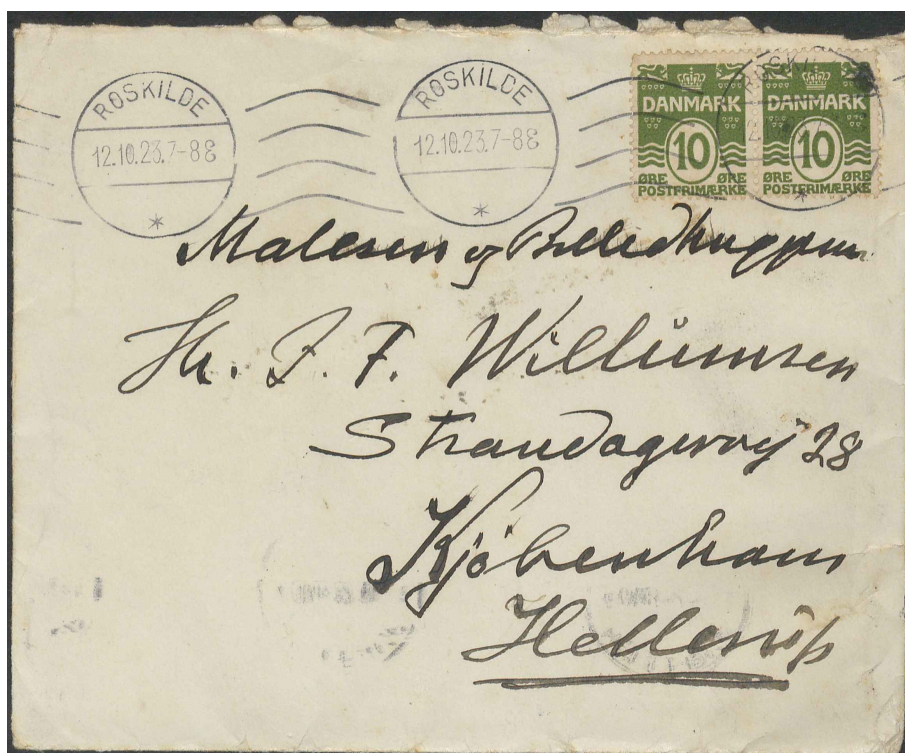 ROSKILDE
12.10.23.7-8E
*
ROSKILDE
12.10.23.7-8E
*
DANMARK
10
ØRE ØRE
POSTFRIMÆRKE
DANMARK
10
ØRE ØRE
POSTFRIMÆRKE
Maleren og Billedhuggeren
Hr. J. F. Willumsen
Strandagervej 28
Kjöbenhavn
Hellerup